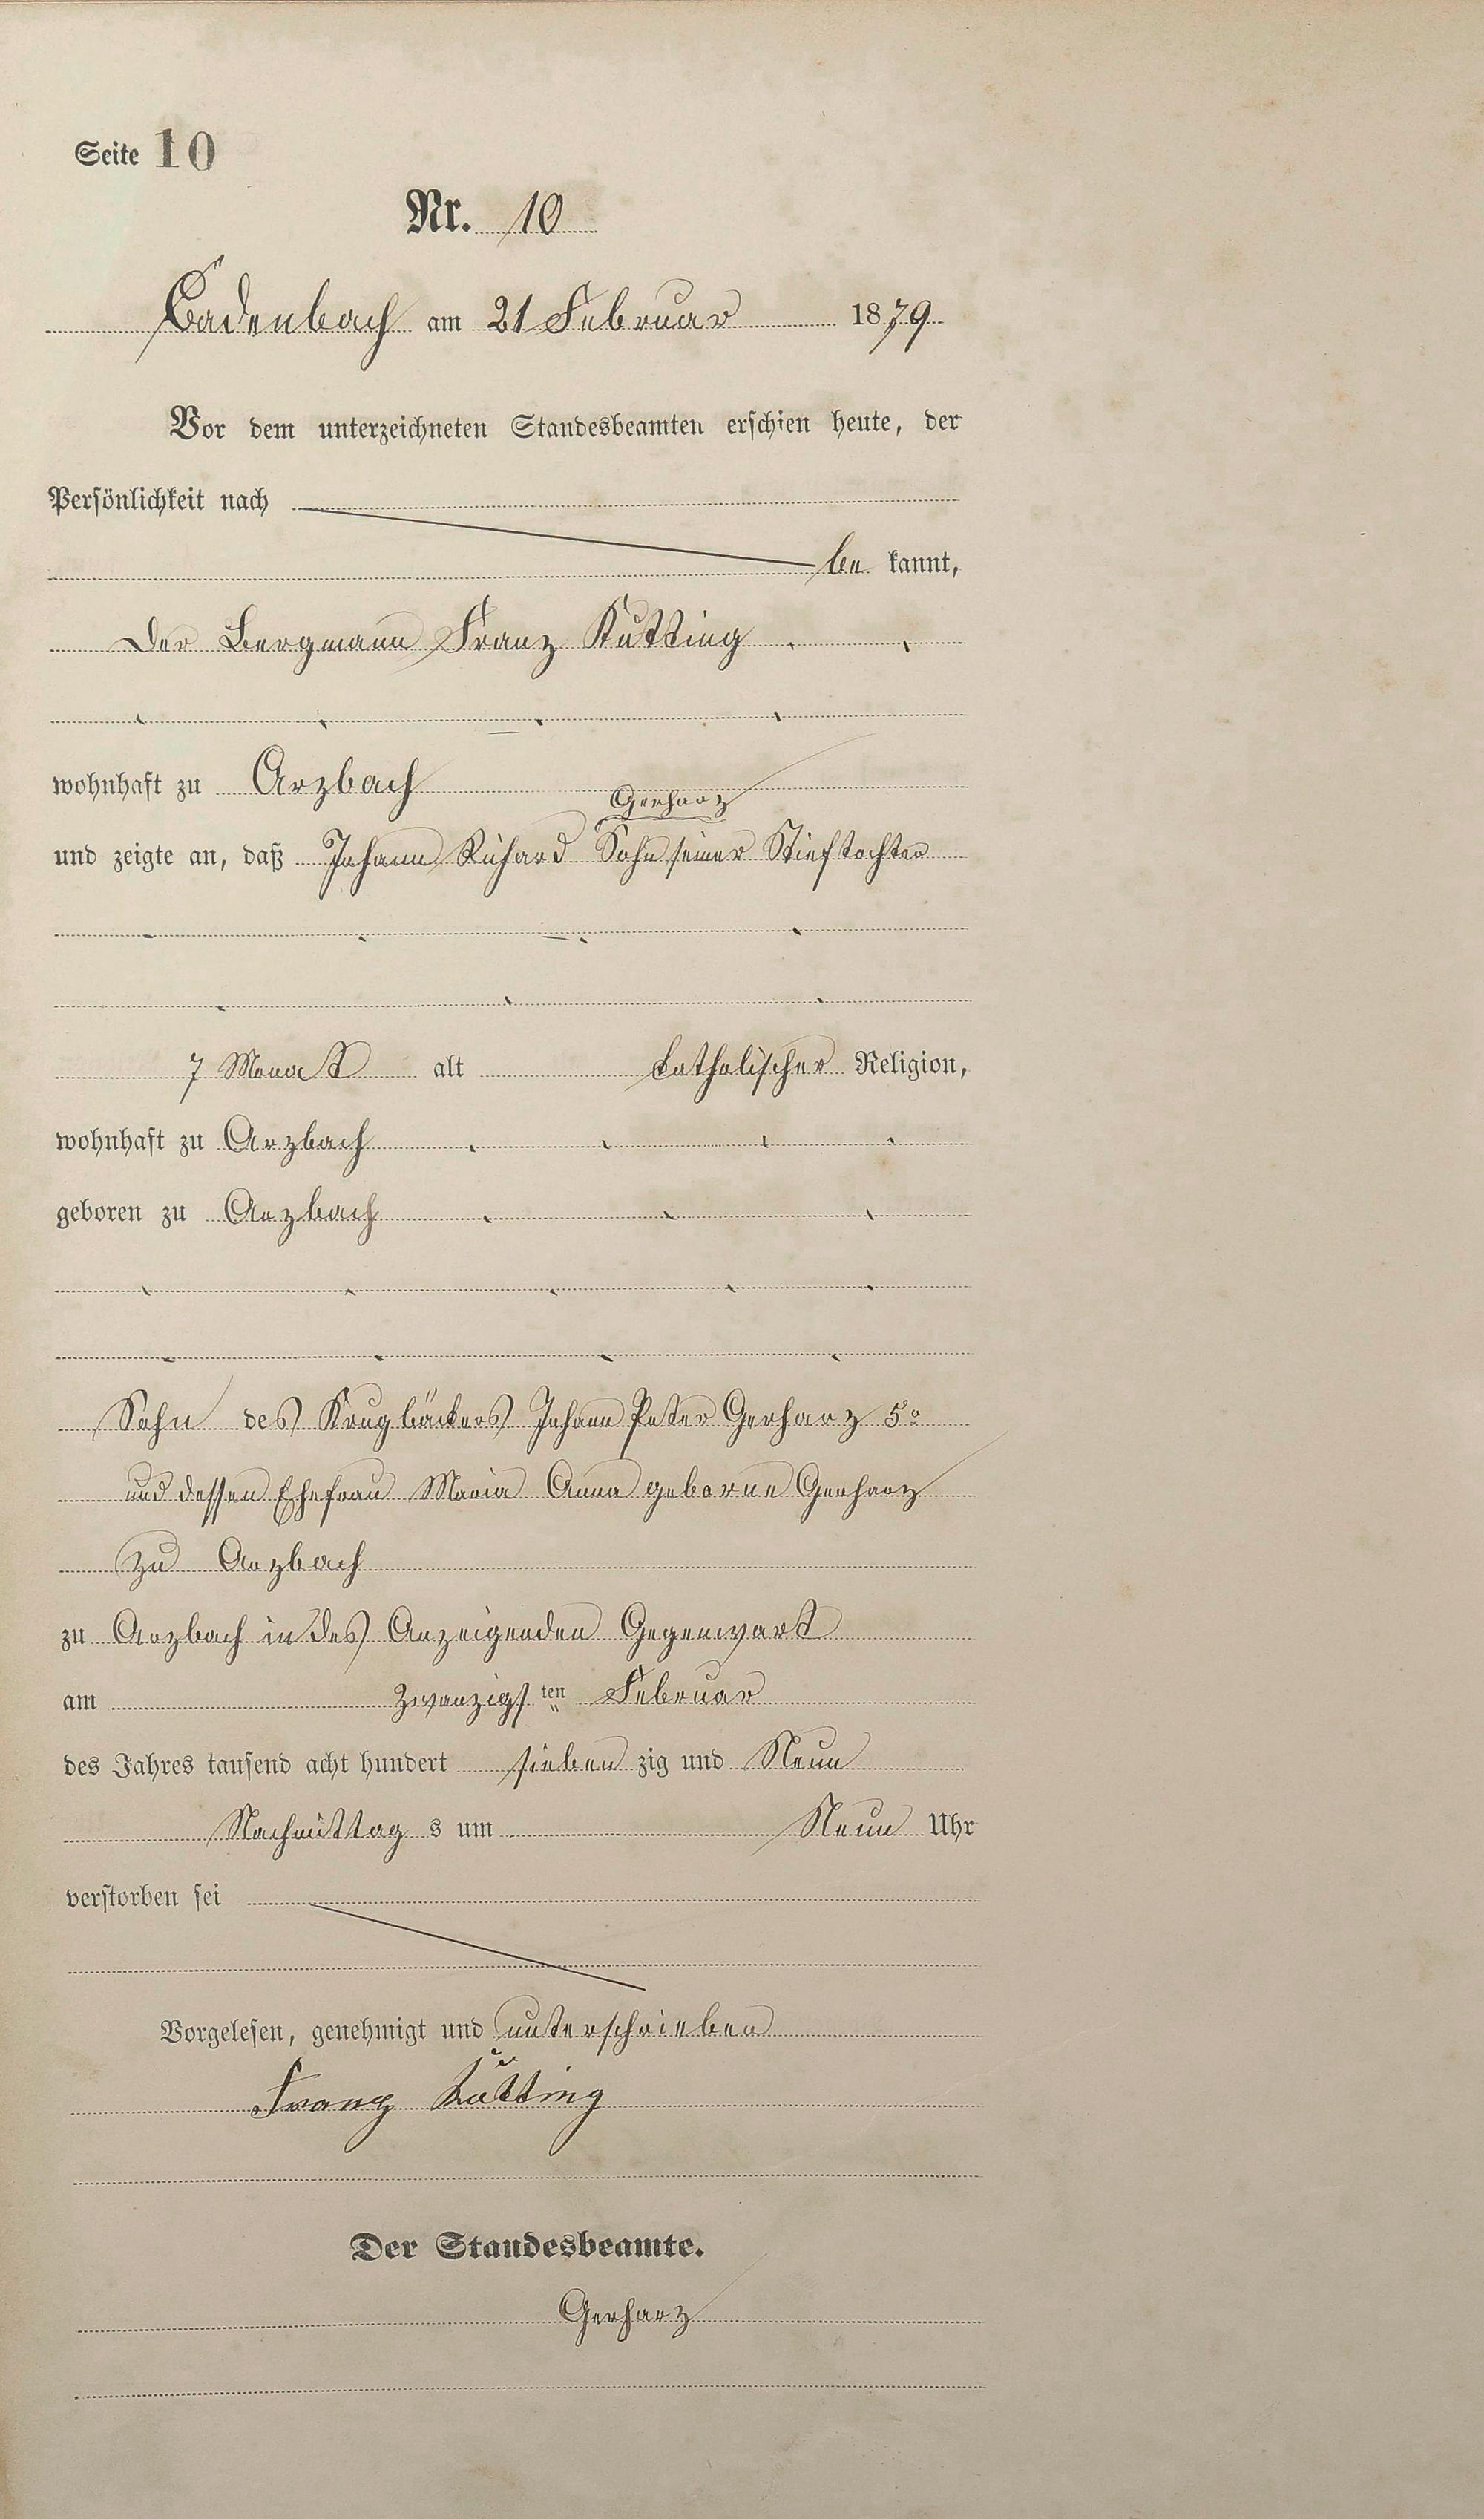 Seite 10
Nr. 10
Cadenbach am 21 Februar 1879
Vor dem unterzeichneten Standesbeamten erschien heute, der
Persönlichkeit nach
be kannt,
Der Bergmann Franz Kutting
wohnhaft zu Arzbach
Gerharz
und zeigte an, daß Johann Richard Sohn seiner Stieftochter
7 Monat alt katholischer Religion,
wohnhaft zu Arzbach
geboren zu Arzbach
Sohn des Krugbäckers Johann Peter Gerharz 5r
und dessen Ehefrau Maria Anna geborne Gerharz
zu Arzbach
zu Arzbach in des Anzeigenden Gegenwart
am Zwanzigs ten Februar
des Jahres tausend acht hundert sieben zig und Neun
Nachmittag s um Neun Uhr
verstorben sei
Vorgelesen, genehmigt und unterschrieben
Franz Kutting
Der Standesbeamte.
Gerharz